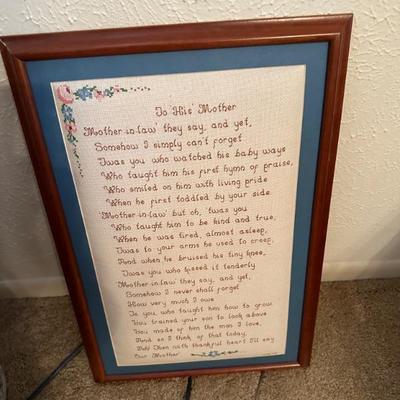 To 'His' Mother
'Mother-in-law' they say, and yet,
Somehow I simply can't forget
'Twas you who watched his baby ways
Who taught him his first hymn of praise,
Who smiled on him with loving pride
When he first toddled by your side.
'Mother-in-law' but oh, 'twas you
Who taught him to be kind and true;
When he was tired, almost asleep,
'Twas to your arms he used to creep;
And when he bruised his tiny knee,
'Twas you who kissed it tenderly.
'Mother-in-law' they say, and yet,
Somehow I never shall forget
How very much I owe
To you, who taught him how to grow.
You trained your son to look above
You made of him the man I love,
And so I think of that today,
Ah! Then with thankful heart I'll say
Our Mother